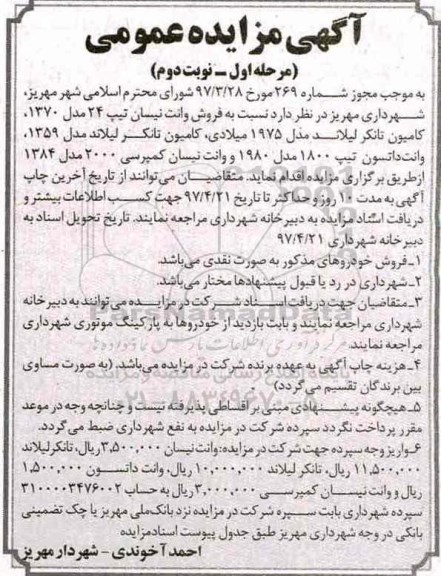 آگهی مزایده عمومی
(مرحله اول ــ نوبت دوم)
به موجب مجوز شماره ۲۶۹ مورخ ۹۷/۳/۲۸ شورای محترم اسلامی شهر مهریز،
شهرداری مهریز در نظر دارد نسبت به فروش وانت نیسان تیپ ۲۴ مدل ۱۳۷۰،
کامیون تانکر لیلاند مدل ۱۹۷۵ میلادی، کامیون تانکر لیلاند مدل ۱۳۵۹،
وانت داتسون تیپ ۱۸۰۰ مدل ۱۹۸۰ و وانت نیسان کمپرسی ۲۰۰۰ مدل ۱۳۸۴
ازطریق برگزاری مزایده اقدام نماید. متقاضیان می‌توانند از تاریخ آخرین چاپ
آگهی به مدت ۱۰ روز و حداکثر تا تاریخ ۹۷/۴/۲۱ جهت کسب اطلاعات بیشتر و
دریافت اسناد مزایده به دبیرخانه شهرداری مراجعه نمایند. تاریخ تحویل اسناد به
دبیرخانه شهرداری ۹۷/۴/۲۱
۱ـ فروش خودروهای مذکور به صورت نقدی می‌باشد.
۲ـ شهرداری در رد یا قبول پیشنهادها مختار می‌باشد.
۳ـ متقاضیان جهت دریافت اسناد شرکت در مزایده می‌توانند به دبیرخانه
شهرداری مراجعه نمایند و بابت بازدید از خودروها به پارکینگ موتوری شهرداری
مراجعه نمایند.
۴ـ هزینه چاپ آگهی به عهده برنده شرکت در مزایده می‌باشد. (به صورت مساوی
بین برندگان تقسیم می‌گردد)
۵ـ هیچگونه پیشنهادی مبنی بر اقساطی پذیرفته نیست و چنانچه وجه در موعد
مقرر پرداخت نگردد سپرده شرکت در مزایده به نفع شهرداری ضبط می‌گردد.
۶ـ واریز وجه سپرده جهت شرکت در مزایده: وانت نیسان ۳,۵۰۰,۰۰۰ ریال، تانکر لیلاند
۱۱,۵۰۰,۰۰۰ ریال، تانکر لیلاند ۱۰,۰۰۰,۰۰۰ ریال، وانت داتسون ۱,۵۰۰,۰۰۰
ریال و وانت نیسان کمپرسی ۳,۰۰۰,۰۰۰ ریال به حساب ۳۱۰۰۰۰۳۴۷۶۰۰۲
سپرده شهرداری بابت سپرده شرکت در مزایده نزد بانک ملی مهریز یا چک تضمینی
بانکی در وجه شهرداری مهریز طبق جدول پیوست اسناد مزایده
احمد آخوندی - شهردار مهریز
ParsNamadData
۰۲۱-۸۸۳۴۹۶۷۰-۵